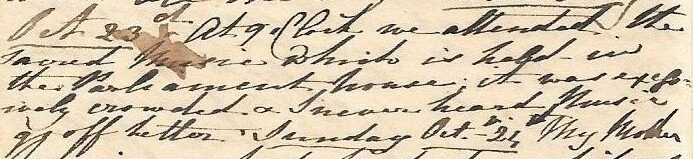 Oct 23d At 9 oClock we attended the
sacred Music which is held in
the Parliament house; it was exces-
ively crowded & I never heard Music
go off better. Sunday Oct. 24th My Mother